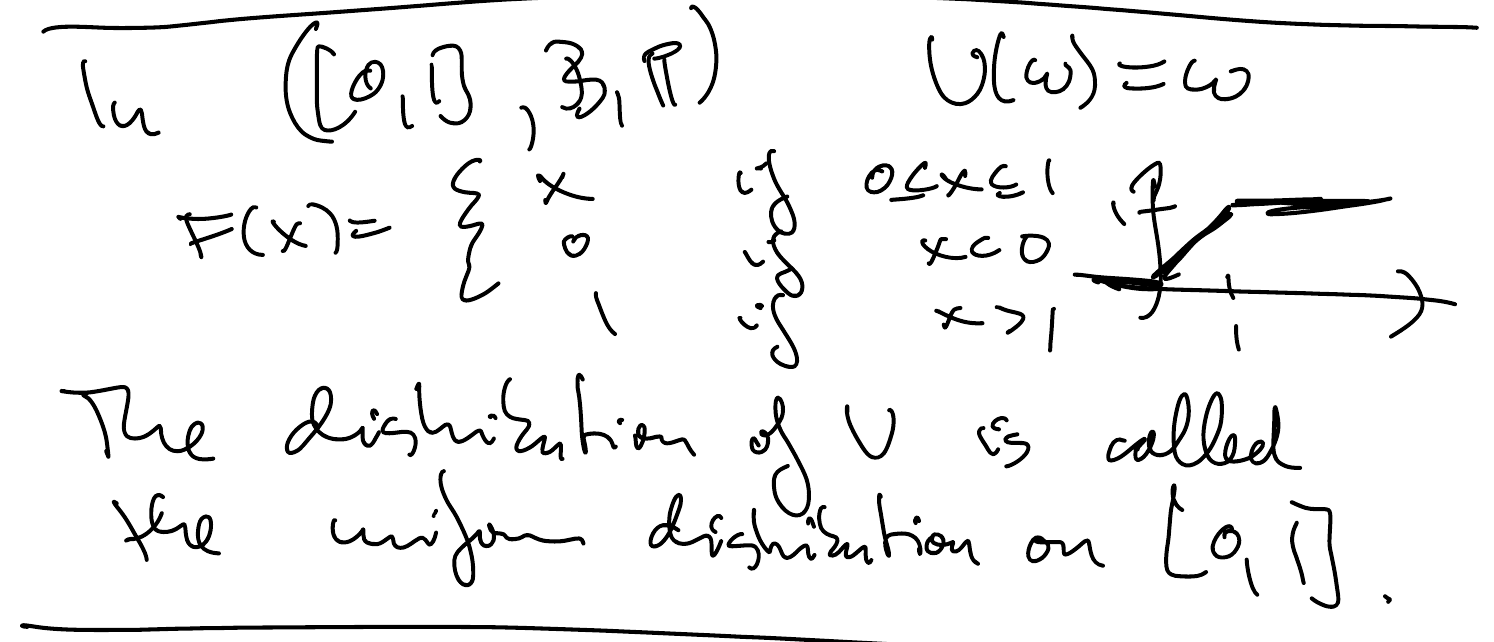 In ([0,1], ℬ, ℙ) U(ω)=ω
F(x)= { x if 0≤x≤1
0 if x<0
1 if x>1
1
1
The distribution of U is called
the uniform distribution on [0,1].